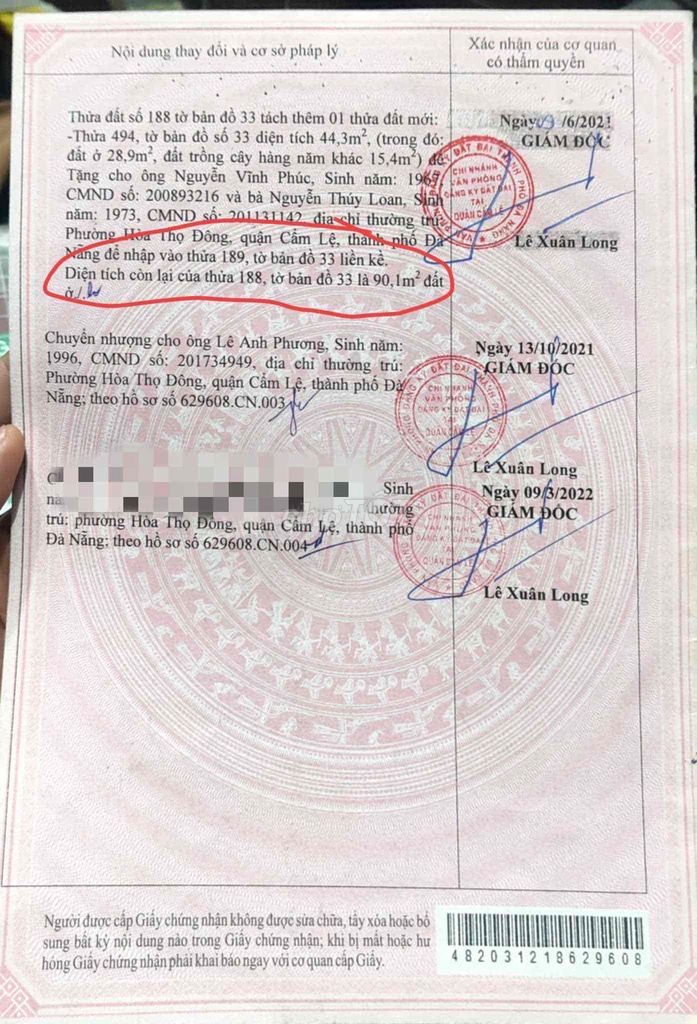 Nội dung thay đổi và cơ sở pháp lý
Xác nhận của cơ quan
có thẩm quyền
Thửa đất số 188 tờ bản đồ 33 tách thêm 01 thửa đất mới:
-Thửa 494, tờ bản đồ số 33 diện tích 44,3m², (trong đó:
đất ở 28,9m², đất trồng cây hàng năm khác 15,4m²) để
Tặng cho ông Nguyễn Vĩnh Phúc, Sinh năm:
CMND số: 200893216 và bà Nguyễn Thúy Loan, Sinh
năm: 1973, CMND số: 201131142, địa chỉ thường trú:
Phường Hòa Thọ Đông, quận Cẩm Lệ, thành phố Đà
Nẵng để nhập vào thửa 189, tờ bản đồ 33 liền kề.
Diện tích còn lại của thửa 188, tờ bản đồ 33 là 90,1m² đất
ở./.
Ngày 09 /6/2021
GIÁM ĐỐC
CHI NHÁNH
VĂN PHÒNG
ĐĂNG KÝ ĐẤT ĐAI
TẠI
QUẬN CẨM LỆ
Lê Xuân Long
Chuyển nhượng cho ông Lê Anh Phương, Sinh năm:
1996, CMND số: 201734949, địa chỉ thường trú:
Phường Hòa Thọ Đông, quận Cẩm Lệ, thành phố Đà
Nẵng; theo hồ sơ số 629608.CN.003
Ngày 13/10/2021
GIÁM ĐỐC
CHI NHÁNH
VĂN PHÒNG
ĐĂNG KÝ ĐẤT ĐAI
TẠI
QUẬN CẨM LỆ
Lê Xuân Long
Sinh
thường
trú: phường Hòa Thọ Đông, quận Cẩm Lệ, thành phố
Đà Nẵng: theo hồ sơ số 629608.CN.004
Ngày 09/3/2022
GIÁM ĐỐC
CHI NHÁNH
VĂN PHÒNG
ĐĂNG KÝ ĐẤT ĐAI
TẠI
QUẬN CẨM LỆ
Lê Xuân Long
Người được cấp Giấy chứng nhận không được sửa chữa, tẩy xóa hoặc bổ
sung bất kỳ nội dung nào trong Giấy chứng nhận; khi bị mất hoặc hư
hỏng Giấy chứng nhận phải khai báo ngay với cơ quan cấp Giấy.
482031218629608